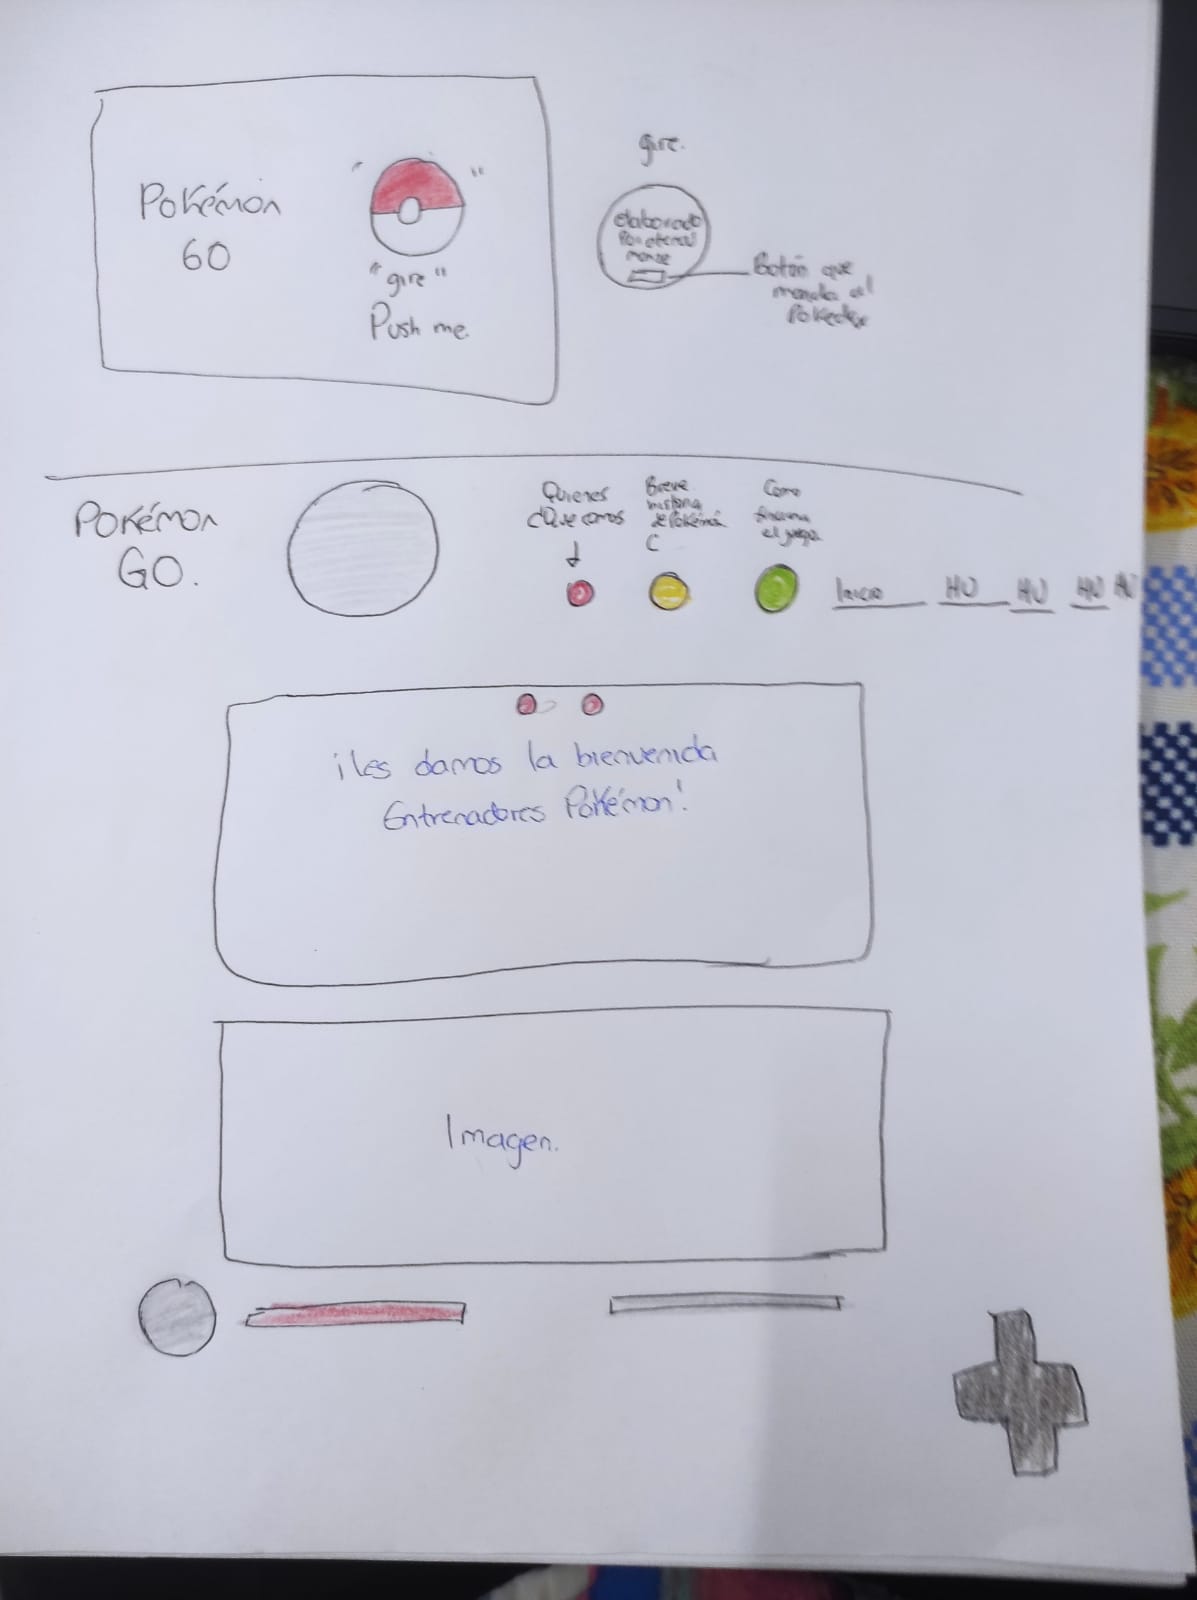 Pokémon
GO
"gire"
Push me.
gire.
elaborado
Por
Botón que
manda al
Pokedex
Pokémon
GO.
Quienes
somos
Breve
historia
de Pokémon
Como
funciona
el juego.
Inicio HU HU HU HU
¡les damos la bienvenida
Entrenadores Pokémon!
Imagen.